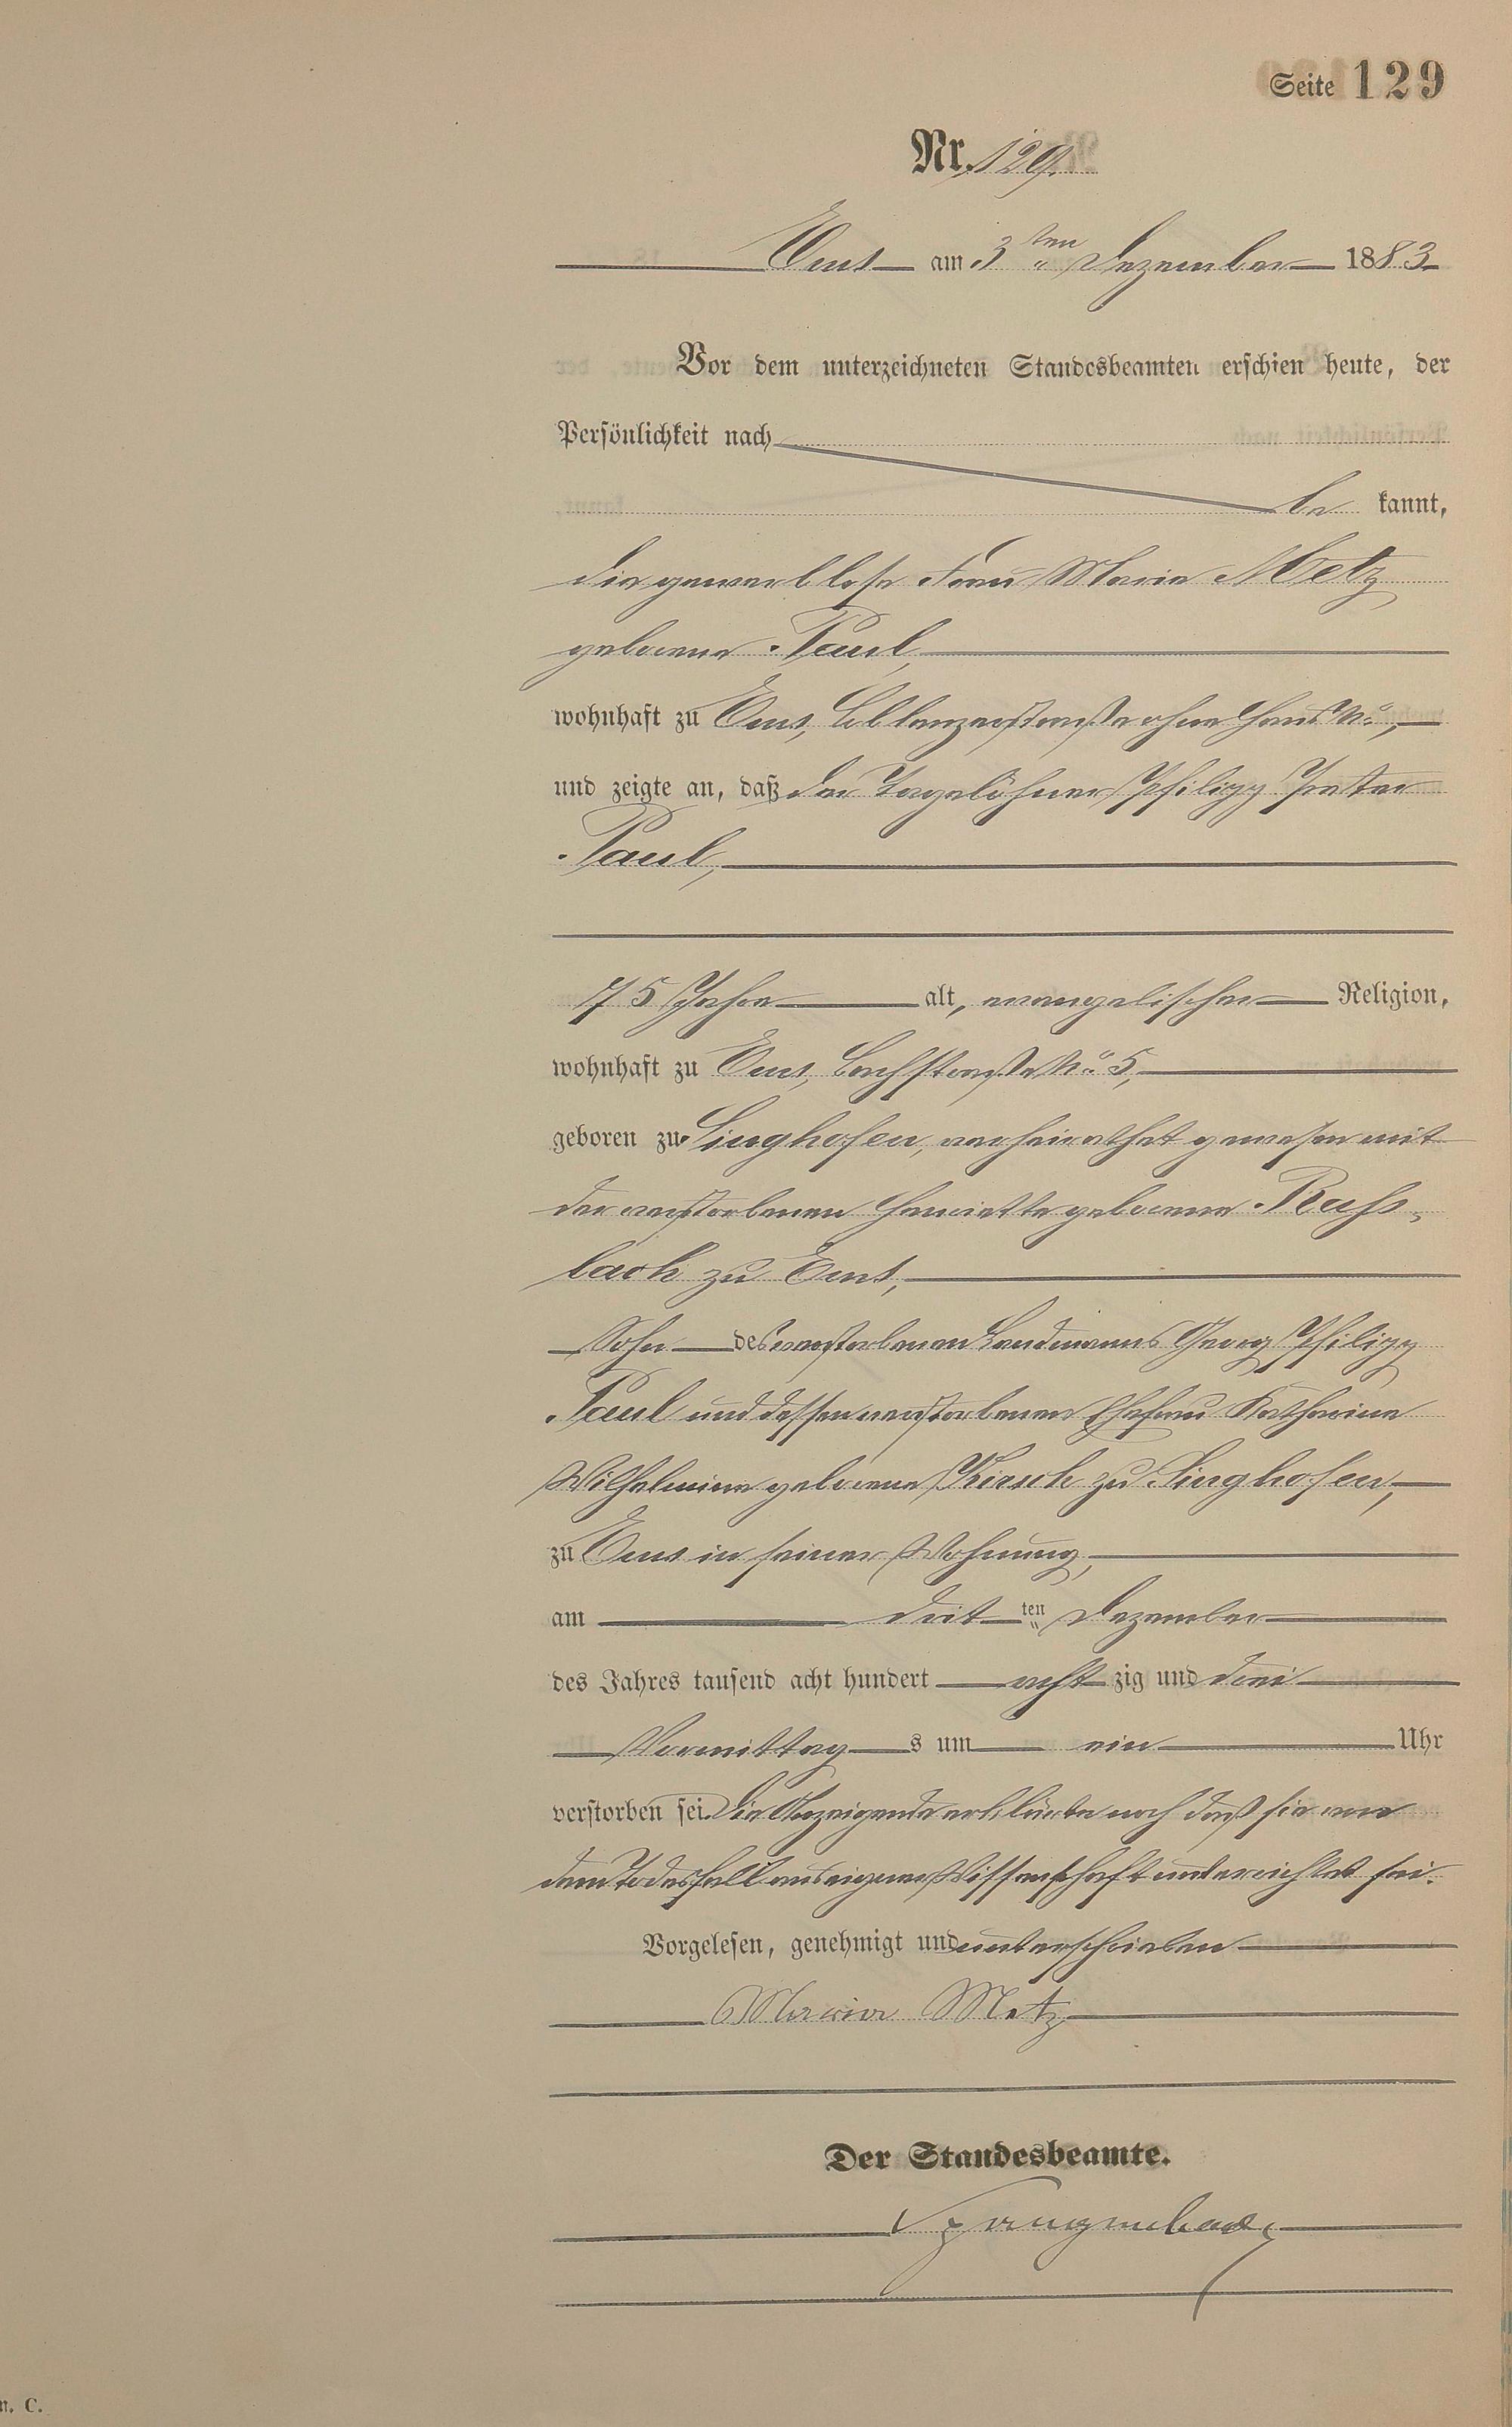 Seite 129
Nr. 129.
Ems am 3ten Dezember 1883
Vor dem unterzeichneten Standesbeamten erschien heute, der
Persönlichkeit nach
be kannt,
die gewerblose Frau Marie Metz
geborene Paul,
wohnhaft zu Ems, Coblenzerstraße ohne Haus No,
und zeigte an, daß der Tagelöhner Philipp Peter
Paul,
75 Jahre alt, evangelischer Religion,
wohnhaft zu Ems, Bachstraße No 5,
geboren zu Singhofen, verheirathet gewesen mit
der verstorbenen Henriette geborene
bach zu Ems,
Sohn des verstorbenen Landmanns Georg Philipp
Paul und dessen verstorbenen Ehefrau Katharine
Wilhelmine geborene Kirsch zu Singhofen,
zu Ems in seiner Wohnung,
am drit ten Dezember
des Jahres tausend acht hundert acht zig und drei
Vormittag s um ein Uhr
verstorben sei. Die Anzeigende erklärte noch daß sie von
dem Todesfall aus eigener Wissenschaft unterrichtet sei.
Vorgelesen, genehmigt und unterschrieben
Marie Metz
Der Standesbeamte.
n. C.